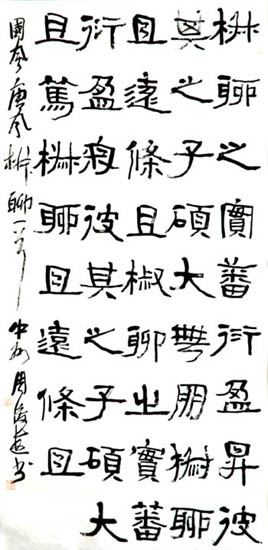 椒聊之實蕃衍盈昇彼
其之子碩大無朋椒聊
且遠條且椒聊之實蕃
衍盈匊彼其之子碩大
且篤椒聊且遠條且
國風唐風椒聊一首 中州周俊杰书